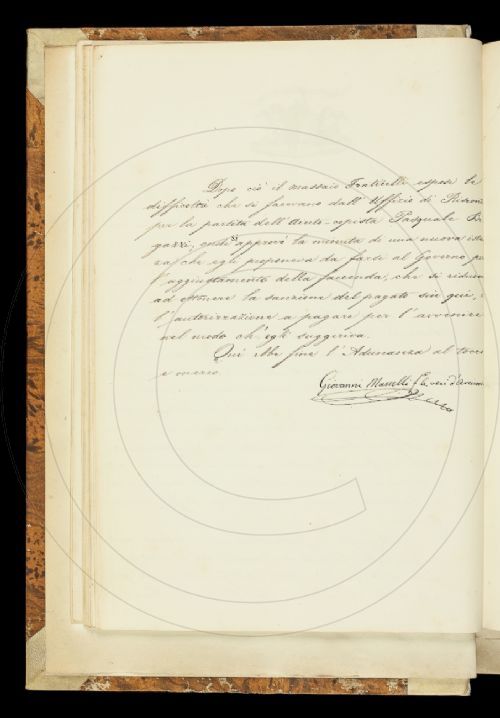 Dopo ciò il massaio Fraticelli espose le
difficoltà che si facevano dall'Uffizio di
per la partita dell'Ajuto-copista Pasquale
gazzi, quindi approvò la minuta di una nuova
za, che egli proponeva da farsi al Governo
l'aggiustamento della faccenda, che si
ad ottenere la sanzione del pagato sin qui,
l'autorizzazione a pagare per l'avvenire
nel modo ch'egli suggeriva.
Qui ebbe fine l'Adunanza al tocco
e mezzo.
Giovanni Masselli